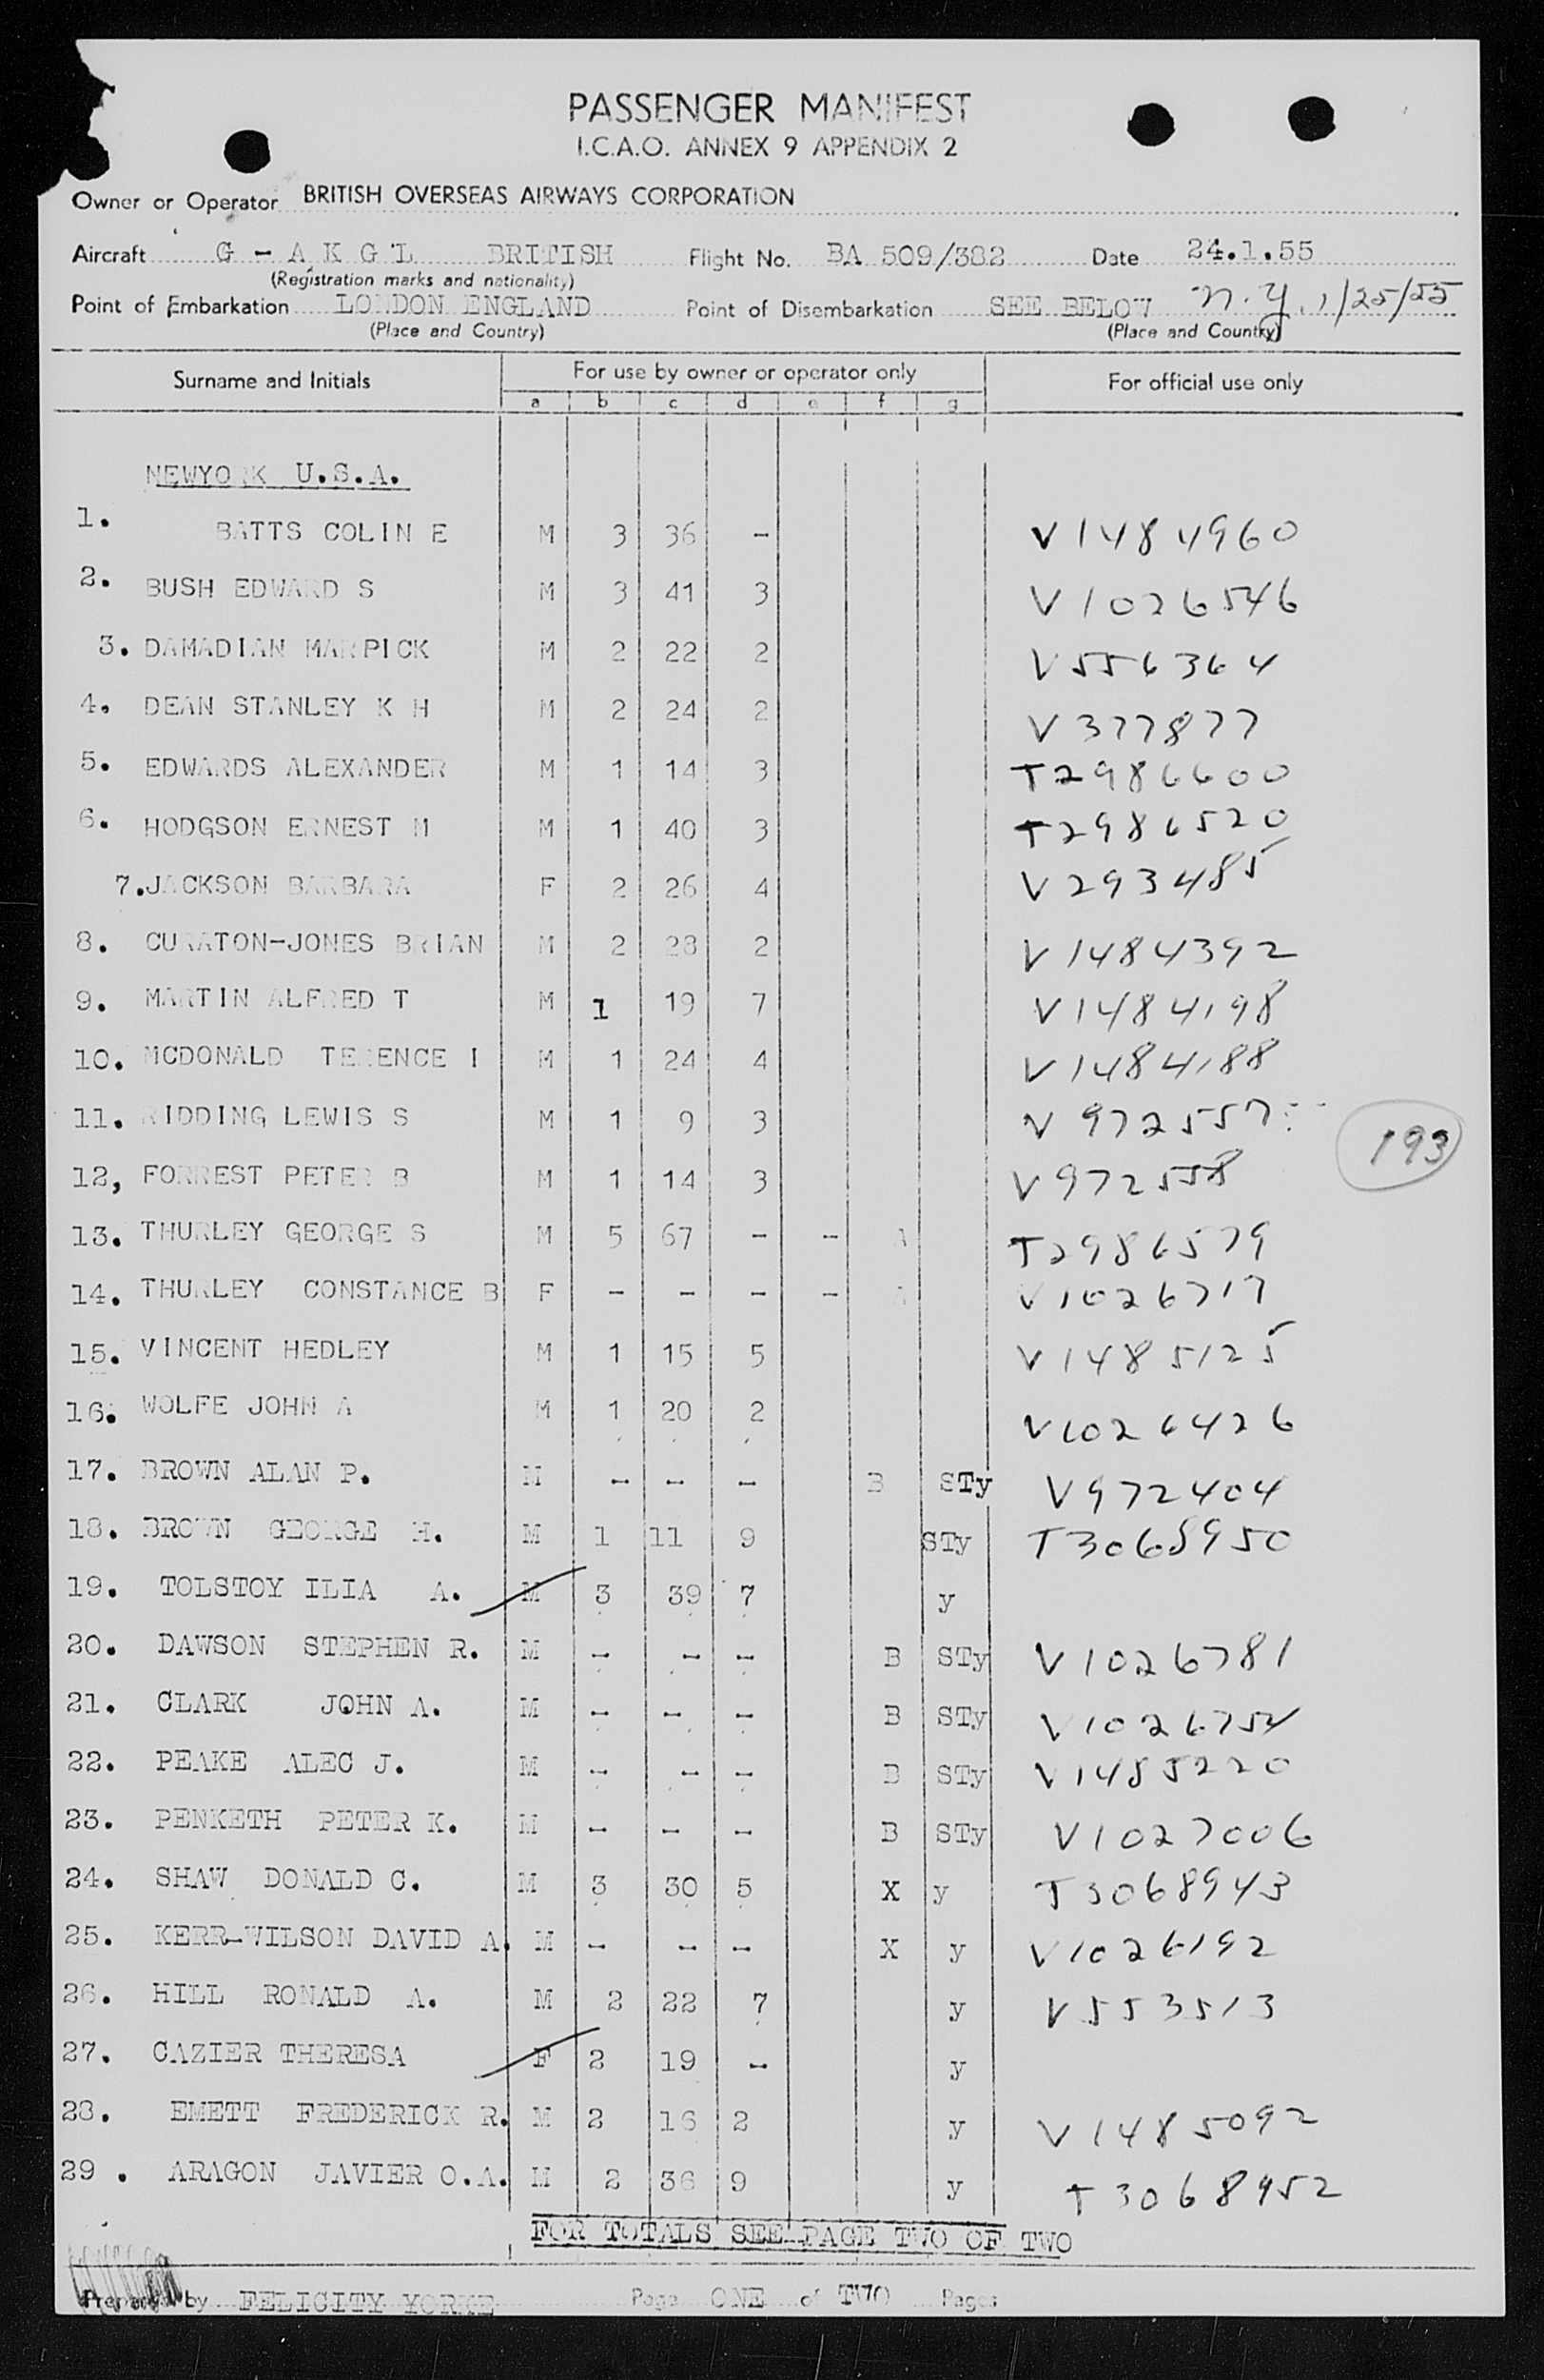 PASSENGER MANIFEST
I.C.A.O. ANNEX 9 APPENDIX 2
Owner or Operator BRITISH OVERSEAS AIRWAYS CORPORATION
Aircraft G - A K G L BRITISH Flight No. BA 509/382 Date 24.1.55
(Registration marks and nationality)
Point of Embarkation LONDON ENGLAND Point of Disembarkation SEE BELOW N.Y. 1/25/55
(Place and Country) (Place and Country)
Surname and Initials For use by owner or operator only For official use only
a b c d e f g
NEWYORK U.S.A.
1. BATTS COLIN E M 3 36 - V1484960
2. BUSH EDWARD S M 3 41 3 V1026546
3. DAMADIAN MARPICK M 2 22 2 V556364
4. DEAN STANLEY K H M 2 24 2 V377877
5. EDWARDS ALEXANDER M 1 14 3 T2986600
6. HODGSON ERNEST M M 1 40 3 T2986520
7. JACKSON BARBARA F 2 26 4 V293485
8. CURATON-JONES BRIAN M 2 28 2 V1484392
9. MARTIN ALFRED T M 1 19 7 V1484198
10. MCDONALD TERENCE I M 1 24 4 V1484188
11. RIDDING LEWIS S M 1 9 3 V972557
193
12, FORREST PETER B M 1 14 3 V972558
13. THURLEY GEORGE S M 5 67 - - T2986579
14. THURLEY CONSTANCE B F - - - - V1026717
15. VINCENT HEDLEY M 1 15 5 V1485125
16. WOLFE JOHN A M 1 20 2 V1026426
17. BROWN ALAN P. M - - - B STy V972404
18. BROWN GEORGE H. M 1 11 9 STy T3068950
19. TOLSTOY ILIA A. M 3 39 7 y
20. DAWSON STEPHEN R. M - - - B STy V1026781
21. CLARK JOHN A. M - - - B STy V1026754
22. PEAKE ALEC J. M - - - B STy V1485220
23. PENKETH PETER K. M - - - B STy V1027006
24. SHAW DONALD C. M 3 30 5 X y T3068943
25. KERR-WILSON DAVID A. M - - - X y V1026192
26. HILL RONALD A. M 2 22 7 y V553513
27. CAZIER THERESA F 2 19 - y
28. EMETT FREDERICK R. M 2 16 2 y V1485092
29 . ARAGON JAVIER O.A. M 2 36 9 y T3068952
FOR TOTALS SEE PAGE TWO OF TWO
Prepared by FELICITY YORKE Page ONE of TWO Pages